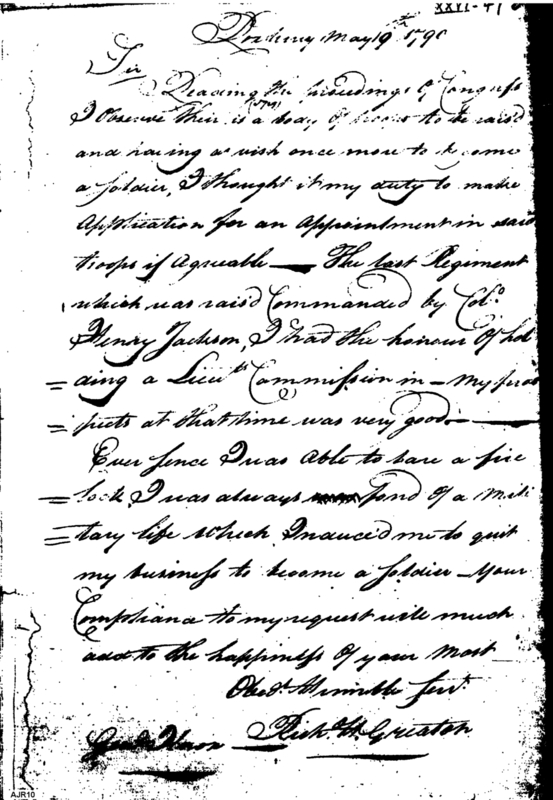 XXVI-41
Roxbury May 19th 1790
Sir
Reading the proceedings of Congress
I observe their is a body of troops to be raisd
and having a wish once more to become
a soldier, I thought it my duty to make
Application for an Appointment in said
troops if Agreable — The last Regiment
which was raisd Commanded by Colo.
Henry Jackson, I had the honour of hol
=ding a Lieuts Commission in — My pros
=pects at that time was very good —
Ever sence I was Able to bare a fire
=lock I was always fond of a mili
=tary life which Induced me to quit
my business to become a soldier — Your
Compliance to my request will much
add to the happiness of your most
Obedt. Humble Servt.
Richd. H Greaton
Genl. Knox
AJR10